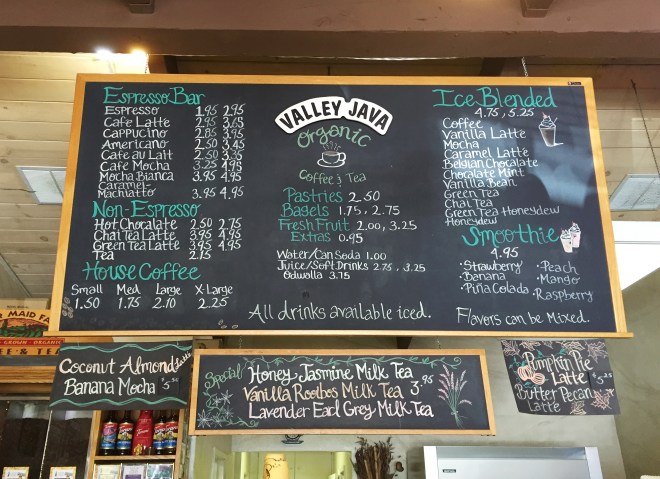 Espresso Bar
Espresso 1.95 2.95
Cafe Latte 2.95 3.65
Cappucino 2.85 3.95
Americano 2.50 3.45
Cafe au Lait 2.50 3.35
Cafe Mocha 3.25 4.95
Mocha Bianca 3.95 4.95
Caramel
Machiatto 3.95 4.95
Non-Espresso
Hot Chocalate 2.50 2.75
Chai Tea Latte 3.95 4.95
Green Tea Latte 3.95 4.95
Tea 2.15
House Coffee
Small Med Large X-Large
1.50 1.75 2.10 2.25
VALLEY JAVA
Organic
Coffee & Tea
Pastries 2.50
Bagels 1.75, 2.75
Fresh Fruit 2.00, 3.25
Extras 0.95
Water/Can Soda 1.00
Juice/Soft Drinks 2.75, 3.25
Odwolla 3.75
All drinks available iced.
Ice Blended
4.75, 5.25
Coffee
Vanilla Latte
Mocha
Caramel Latte
Belgian Chocolate
Chocolate Mint
Vanilla Bean
Green Tea
Chai Tea
Green Tea Honeydew
Honeydew
Smoothie
4.95
• Strawberry • Peach
• Banana • Mango
• Piña Colada • Raspberry
Flavors can be Mixed.
MAID FA
GROWN ORGANIC
E & TEA
Coconut Almond Latte
Banana Mocha
Special
Honey Jasmine Milk Tea
Vanilla Rooibos Milk Tea 3.95
Lavender Earl Grey Milk Tea
Pumpkin Pie
Latte
Butter Pecan
Latte